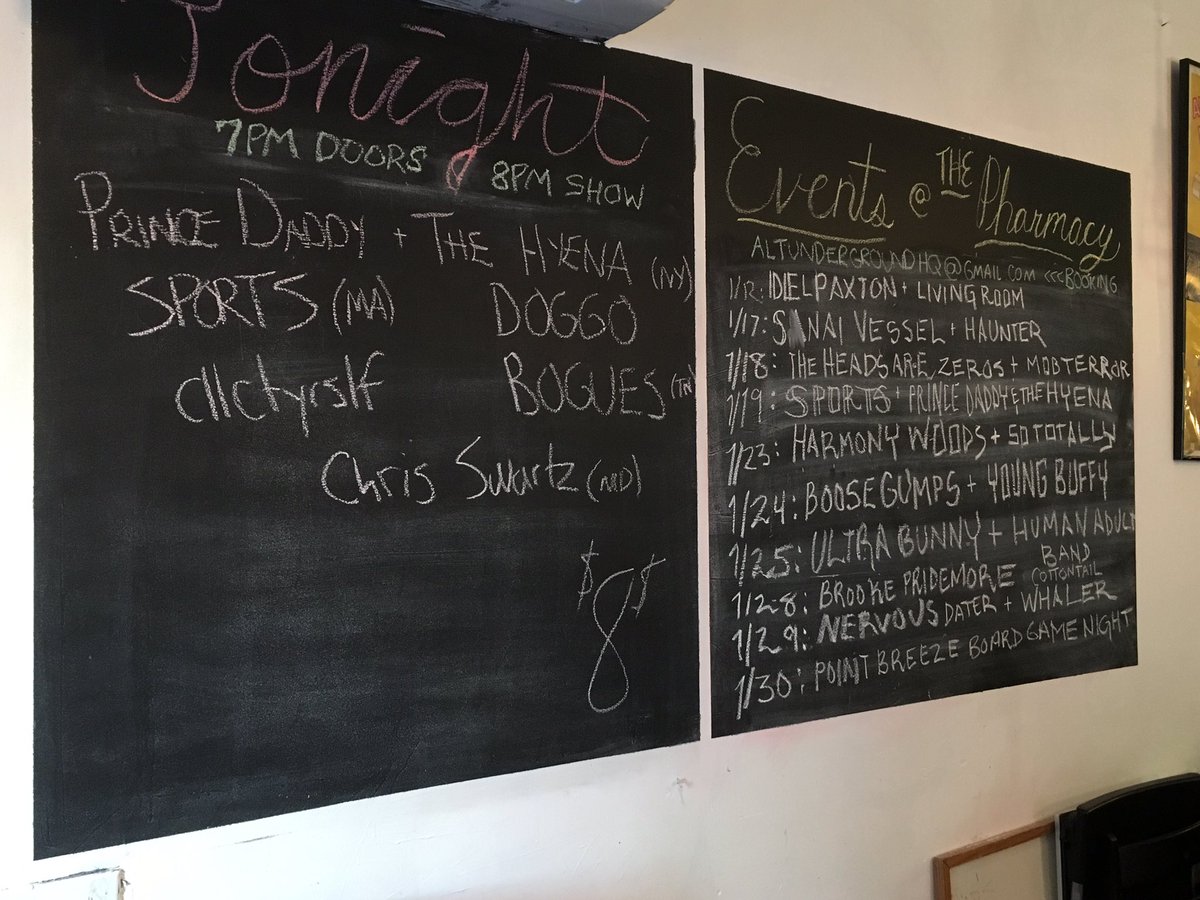 Tonight
7PM DOORS 8PM SHOW
PRINCE DADDY + THE HYENA (NY)
SPORTS (MA) DOGGO
cllctyrslf BOGUES (TN)
Chris Swartz (MD)
$8$
Events @ THE Pharmacy
ALTUNDERGROUNDHQ@GMAIL.COM <<<BOOKING
1/12: IDLE PAXTON + LIVING ROOM
1/17: SANAI VESSEL + HAUNTER
1/18: THE HEADS ARE ZEROS + MOB TERROR
1/19: SPORTS + PRINCE DADDY & THE HYENA
1/23: HARMONY WOODS + SO TOTALLY
1/24: BOOSEGUMPS + YOUNG BUFFY
1/25: ULTRA BUNNY + HUMAN ADULT BAND
1/28: BROOKE PRIDEMORE COTTONTAIL
1/29: NERVOUS DATER + WHALER
1/30: POINT BREEZE BOARD GAME NIGHT